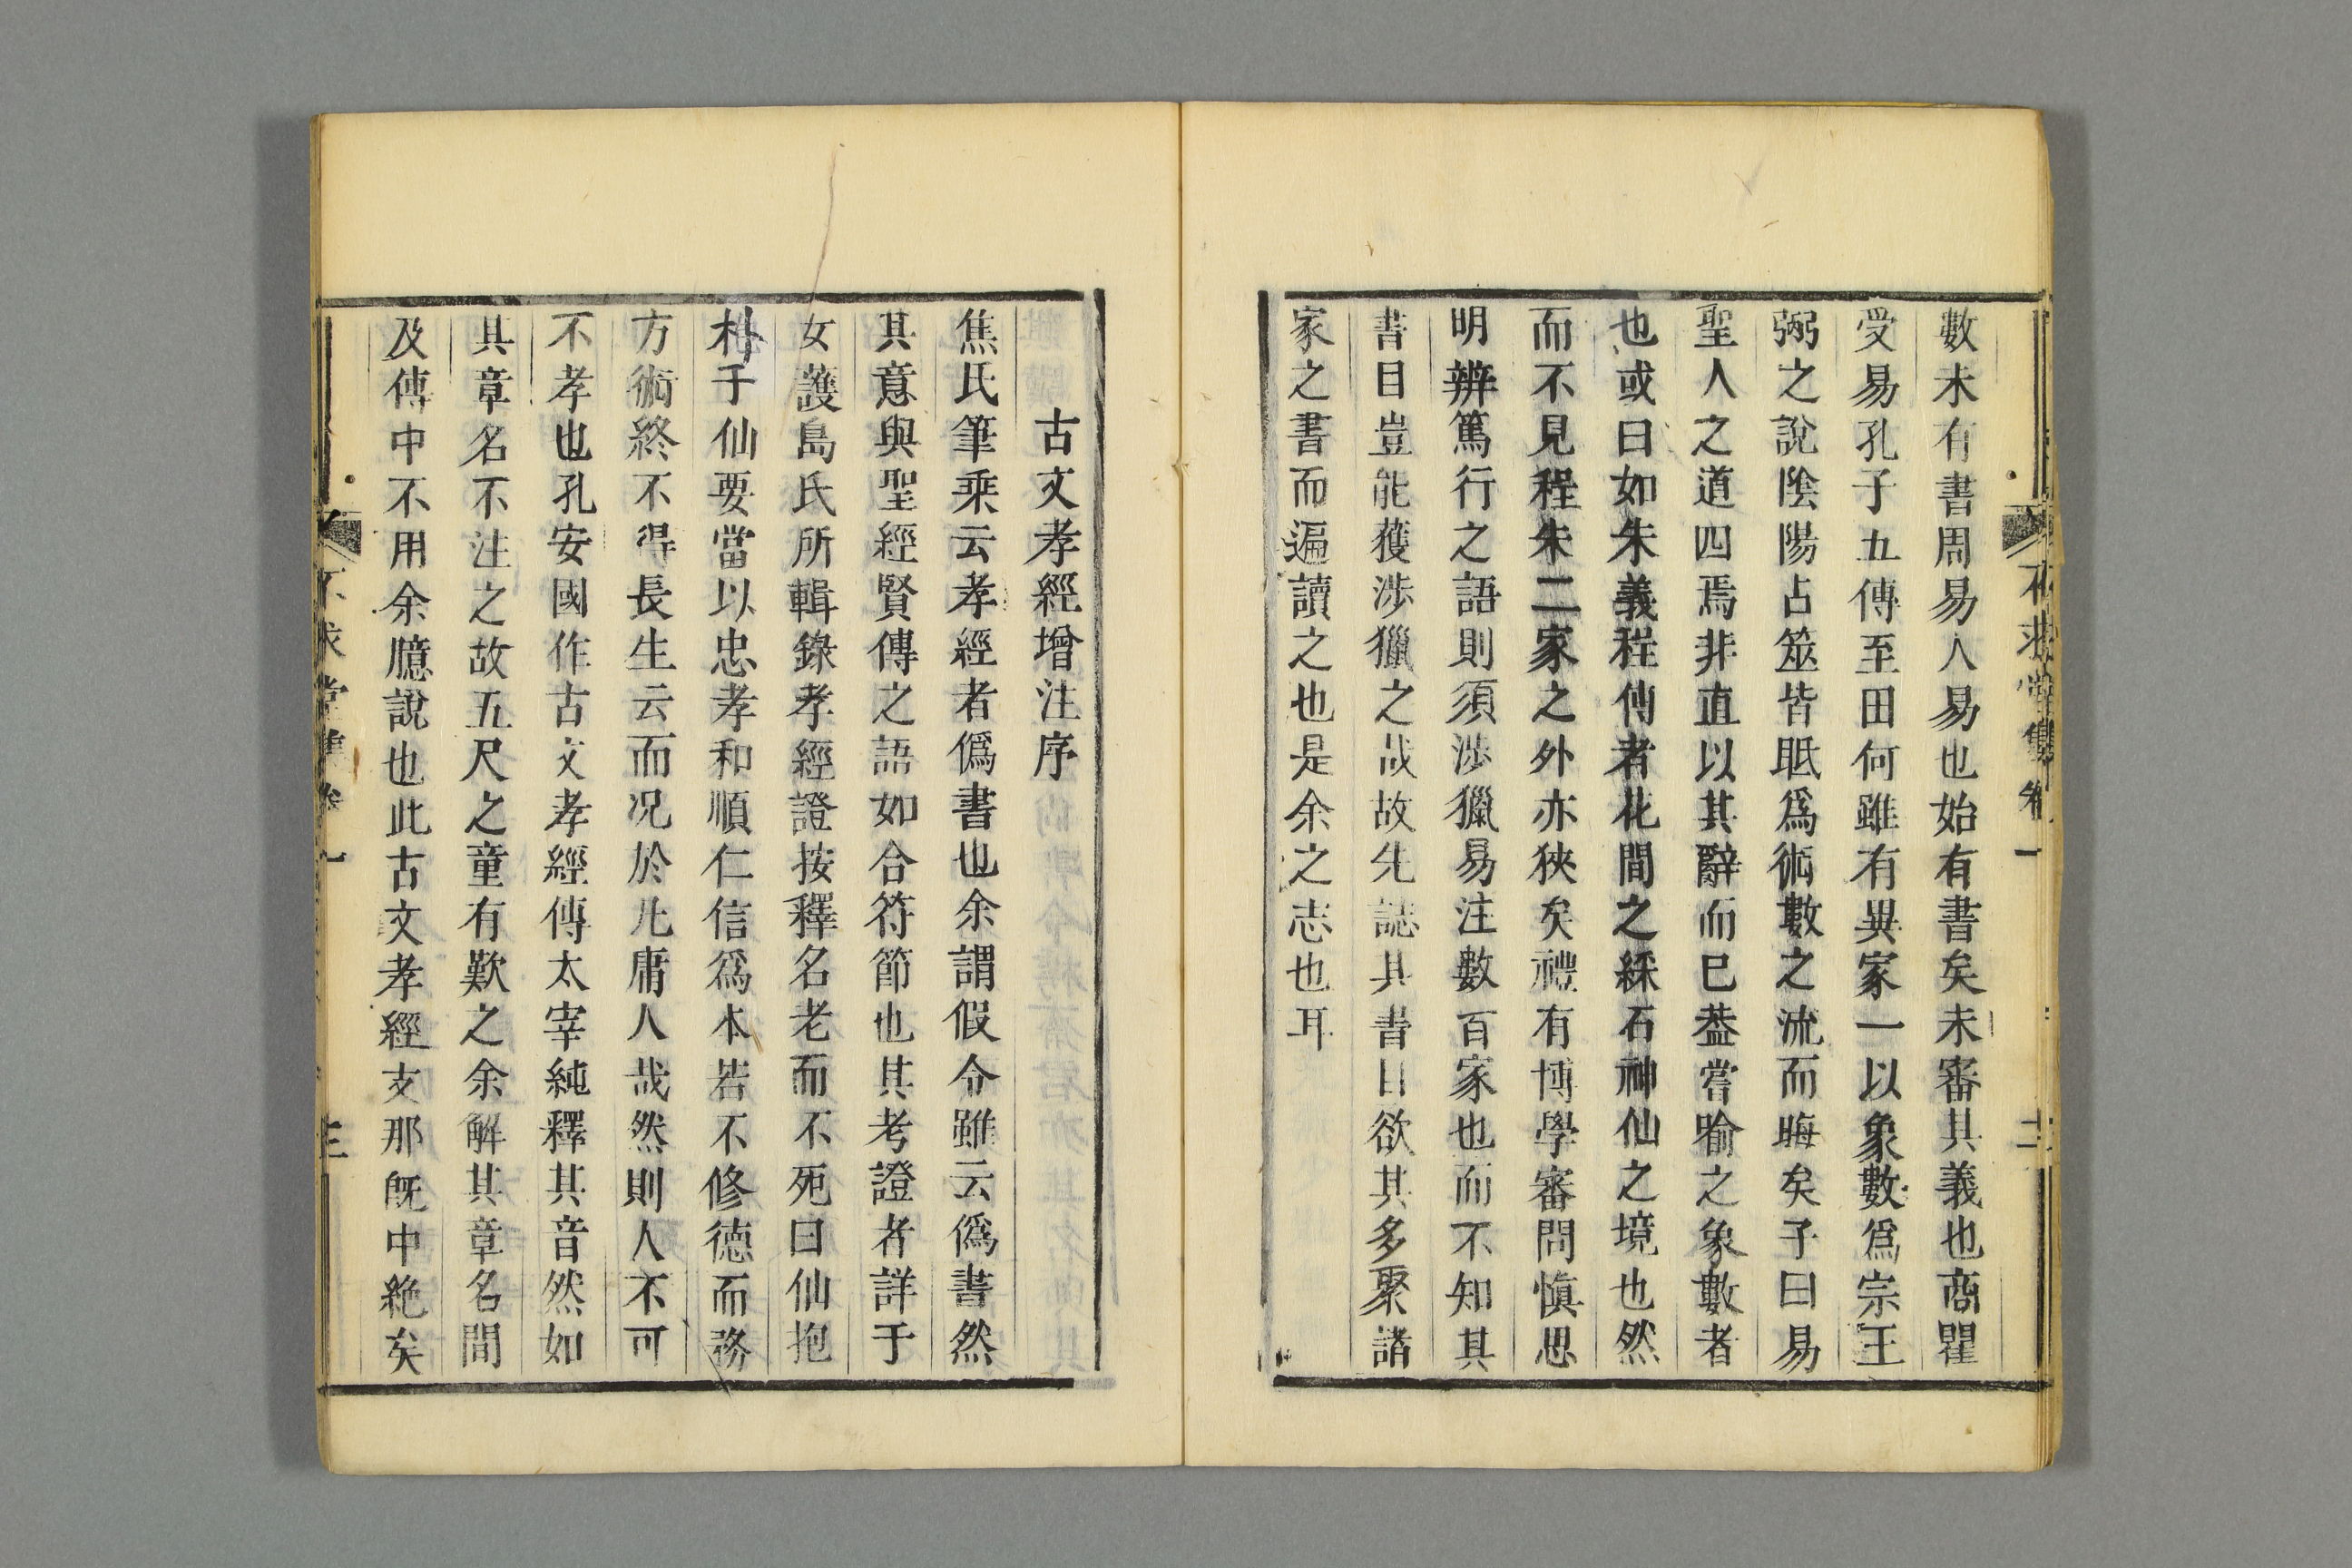 數未有書周易人易也始有書矣未審其義也商瞿
受易孔子五傳至田何雖有異家一以象數爲宗王
弼之說陰陽占筮皆眂爲術數之流而晦矣子曰易
聖人之道四焉非直以其辭而已葢嘗喻之象數者
也或曰如朱義程傳者花間之綵石神仙之境也然
而不見程朱二家之外亦狹矣禮有博學審問愼思
明辨篤行之語則須涉獵易注數百家也而不知其
書目豈能獲涉獵之哉故先誌其書目欲其多聚諸
家之書而遍讀之也是余之志也耳
古文孝經增注序
焦氏筆乘云孝經者僞書也余謂假令雖云僞書然
其意與聖經賢傳之語如合符節也其考證者詳于
女護島氏所輯錄孝經證按釋名老而不死曰仙抱
朴子仙要當以忠孝和順仁信爲本若不修德而務
方術終不得長生云而况於凡庸人哉然則人不可
不孝也孔安國作古文孝經傳太宰純釋其音然如
其章名不注之故五尺之童有歎之余解其章名間
及傳中不用余臆說也此古文孝經支那旣中絶矣
堂 三